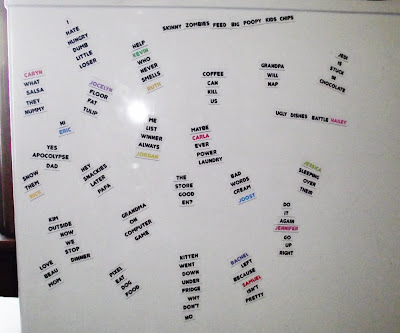 SKINNY ZOMBIES FEED BIG POOPY KIDS CHIPS
I
HATE
HUNGRY
DUMB
LITTLE
LOSER
HELP
KEVIN
WHO
NEVER
SMELLS
RUTH
JEN
IS
STUCK
IN
CHOCOLATE
GRANDPA
WILL
NAP
COFFEE
CAN
KILL
US
CARYN
WHAT
SALSA
THEY
MUMMY
JOCELYN
FLOOR
FAT
TULIP
UGLY DISHES BATTLE HAILEY
ME
LIST
WINNER
ALWAYS
JORDAN
HI
ERIC
MAYBE
CARLA
EVER
POWER
LAUNDRY
YES
APOCOLYPSE
DAD
HEY
SNACKIES
LATER
PAPA
SNOW
THEM
JESSICA
SLEEPING
OVER
THEIR
THE
STORE
GOOD
EH?
BAD
WORDS
CREAM
JOOST
DO
IT
AGAIN
JENNIFER
GO
UP
RIGHT
GRANDMA
ON
COMPUTER
GAME
KIM
OUTSIDE
NOW
WE
STOP
DINNER
LOVE
BEAU
MOM
PIXEL
EAT
DOG
FOOD
KITTEN
WENT
DOWN
UNDER
FRIDGE
WHY
DON'T
NO
RACHEL
LEFT
BECAUSE
SAMUEL
ISN'T
PRETTY